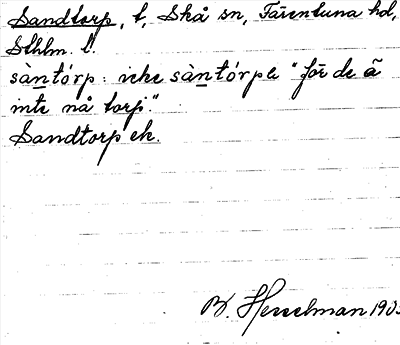 Sandtorp, t, Skå sn, Färentuna hd,
Sthlm. l.
sàntórp: icke sàntórpa "för de ä
inte nå torp."
Sandtorp ek.
B. Hesselman